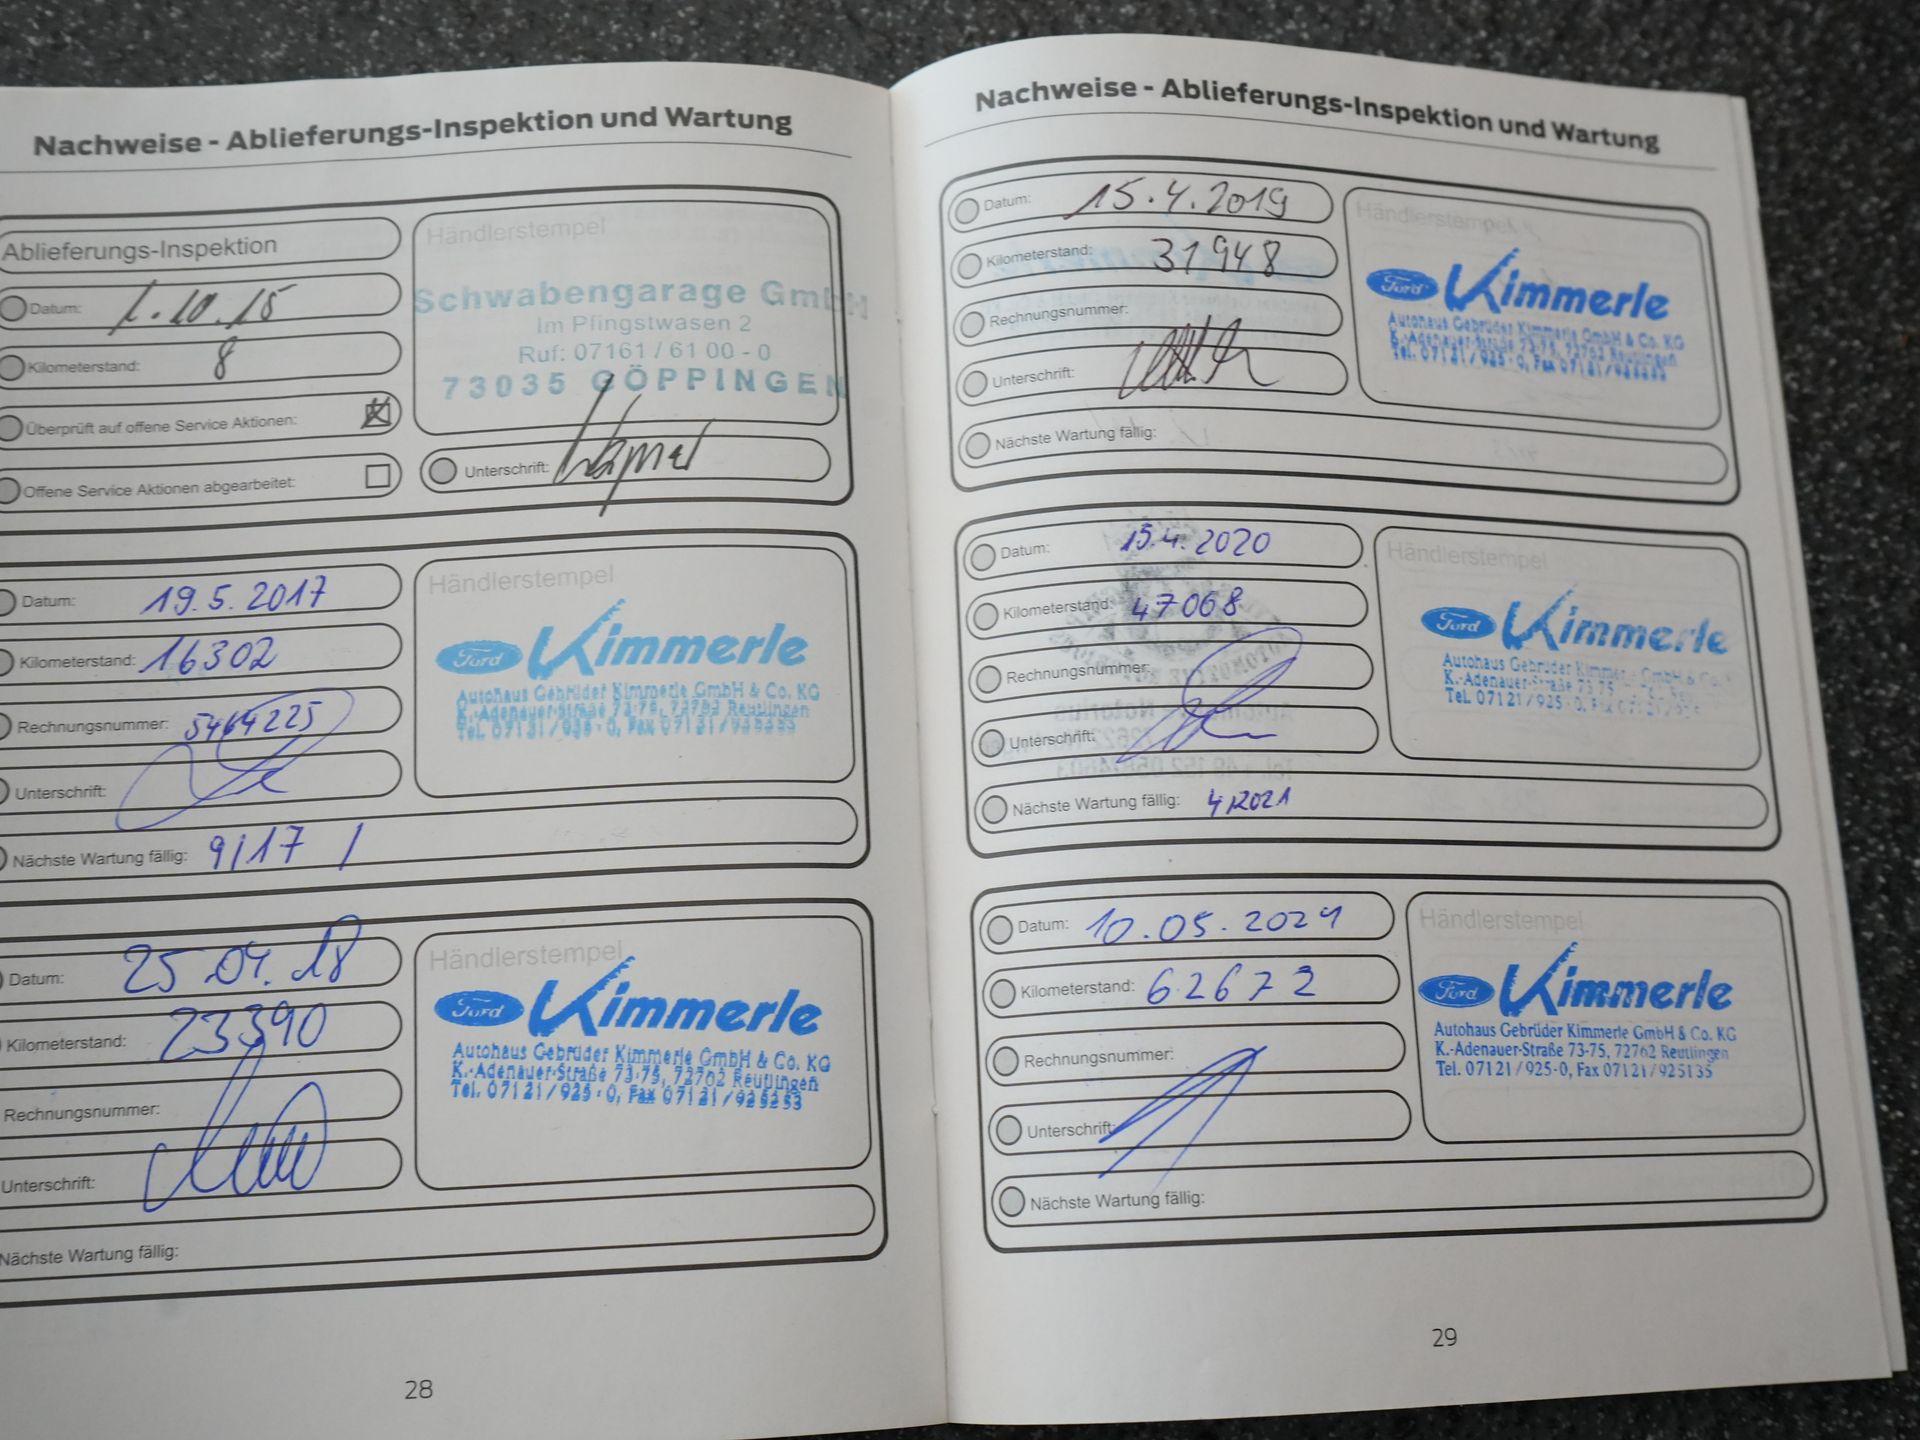 Nachweise - Ablieferungs-Inspektion und Wartung
Ablieferungs-Inspektion
Datum: 1.10.15
Kilometerstand: 8
Überprüft auf offene Service Aktionen:
Offene Service Aktionen abgearbeitet:
Händlerstempel
Schwabengarage GmbH
Im Pfingstwasen 2
Ruf: 07161 / 61 00 - 0
73035 GÖPPINGEN
Unterschrift:
Datum: 19.5.2017
Kilometerstand: 16302
Rechnungsnummer: 5464225
Unterschrift:
Nächste Wartung fällig: 9/17 /
Händlerstempel
Ford Kimmerle
Autohaus Gebrüder Kimmerle GmbH & Co. KG
K.-Adenauer-Straße 73-75, 72762 Reutlingen
Tel. 07121/925-0, Fax 07121/925253
Datum: 25.04.18
Kilometerstand: 23390
Rechnungsnummer:
Unterschrift:
Nächste Wartung fällig:
Händlerstempel
Ford Kimmerle
Autohaus Gebrüder Kimmerle GmbH & Co. KG
K.-Adenauer-Straße 73-75, 72762 Reutlingen
Tel. 07121/925-0, Fax 07121/925253
28
Nachweise - Ablieferungs-Inspektion und Wartung
Datum: 15.4.2019
Kilometerstand: 31948
Rechnungsnummer:
Unterschrift:
Nächste Wartung fällig:
Händlerstempel
Ford Kimmerle
Autohaus Gebrüder Kimmerle GmbH & Co. KG
K.-Adenauer-Straße 73-75, 72762 Reutlingen
Tel. 07121/925-0, Fax 07121/925253
Datum: 15.4.2020
Kilometerstand: 47068
Rechnungsnummer:
Unterschrift:
Nächste Wartung fällig: 4/2021
Händlerstempel
Ford Kimmerle
Autohaus Gebrüder Kimmerle GmbH & Co.
K.-Adenauer-Straße 73-75
Tel. 07121/925-0, Fax 07121/925
Datum: 10.05.2021
Kilometerstand: 62672
Rechnungsnummer:
Unterschrift:
Nächste Wartung fällig:
Händlerstempel
Ford Kimmerle
Autohaus Gebrüder Kimmerle GmbH & Co. KG
K.-Adenauer-Straße 73-75, 72762 Reutlingen
Tel. 07121/925-0, Fax 07121/925135
29